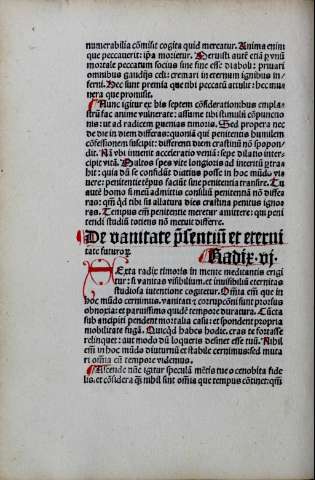 numerabilia cõmisit cogita quid mereatur. Anima enim
que peccauerit: ip̃a morietur. Meruisti autẽ etiã ꝓ vnũ
mortale peccatum socius sine fine esse diaboli: priuari
omnibus gaudijs celi: cremari in eternum ignibus in/
ferni. Hec sunt premia que tibi peccatũ attulit: hec mu
nera que promisit.
Nunc igitur ex his septem cõsiderationibus empla
strũ fac anime vulnerate: assume tibi stimulũ cõpunctio
nis: vt ad radicem ꝑuenias timoris. Sed propera nec
de die in diem differas: quoniã qui penitenti humilem
cõfessionem suscipit: differenti diem crastinũ nõ spopon/
dit. Nã vbi inuenit acceleratio veniã: sepe dilatio inter/
cipit vitã. Multos spes vite longioris ad interitũ ꝑtra
hit: quia dũ se confidũt diutius posse in hoc mũdo vi/
uere: penitentie tẽpus faciũt sine penitentia transire. Tu
autẽ homo si metũ admittis consiliũ penitentiã nõ differas:
qm̃ qd tibi sit allatura dies crastina penitus igno
ras. Tempus em̃ penitentie meretur amittere: qui peni
tendi studiũ totiens nõ metuit differre.
De vanitate p̃sentiũ et eterni
tate futuroꝝ Radix. vj.
Sexta radix timoris in mente meditantis erigi
tur: si vanitas visibilium, et inuisibiliũ eternitas
studiosa intentione cogitetur. Om̃ia em̃ que in
hoc mũdo cernimus, vanitati ⁊ corruptioni sunt prorsus
obnoxia: et paruissimo quidẽ tempore duratura. Cũcta
sub ancipiti pendent mortalia casu: et spondent propria
mobilitate fugã. Quicqd habes hodie, cras te fortasse
relinquet: aut modo dũ loqueris desinet esse tuũ. Nihil
em̃ in hoc mũdo diuturnũ et stabile cernimus: sed muta
ri om̃ia cũ tempore videmus.
Ascende nũc igitur speculã mẽtis tue o cenobita fide
lis: et cõsidera qꝫ nihil sint om̃ia que tempus cõtinet: qm̃